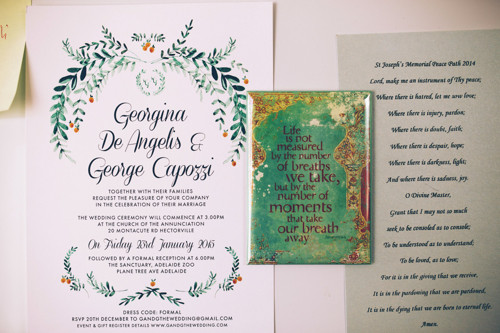 Georgina
De Angelis &
George Capozzi
TOGETHER WITH THEIR FAMILIES
REQUEST THE PLEASURE OF YOUR COMPANY
IN THE CELEBRATION OF THEIR MARRIAGE
THE WEDDING CEREMONY WILL COMMENCE AT 3.00PM
AT THE CHURCH OF THE ANNUNCIATION
20 MONTACUTE RD HECTORVILLE
On Friday 23rd January 2015
FOLLOWED BY A FORMAL RECEPTION AT 6.00PM
THE SANCTUARY, ADELAIDE ZOO
PLANE TREE AVE ADELAIDE
DRESS CODE: FORMAL
RSVP 20TH DECEMBER TO GANDGTHEWEDDING@GMAIL.COM
EVENT & GIFT REGISTER DETAILS WWW.GANDGTHEWEDDING.COM
Life
is not
measured
by the number
of breaths
we take,
but by the
number of
moments
that take
our breath
away
St Joseph's Memorial Peace Path 2014
Lord, make me an instrument of Thy peace;
Where there is hatred, let me sow love;
Where there is injury, pardon;
Where there is doubt, faith;
Where there is despair, hope;
Where there is darkness, light;
And where there is sadness, joy.
O Divine Master,
Grant that I may not so much
seek to be consoled as to console;
To be understood as to understand;
To be loved, as to love;
For it is in the giving that we receive,
It is in the pardoning that we are pardoned,
It is in the dying that we are born to eternal life.
Amen.